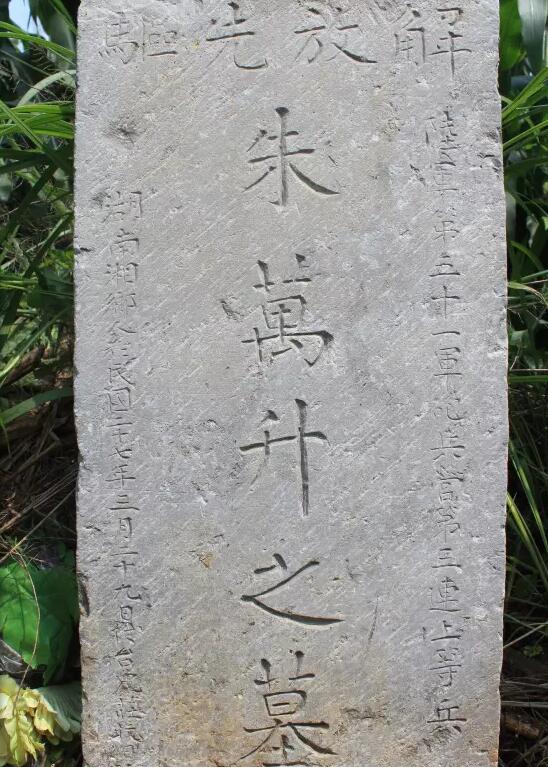 解放先驅
陸軍第五十一軍砲兵營第三連上等兵
朱萬升之墓
湖南湘鄉 民國二十七年三月二十九日